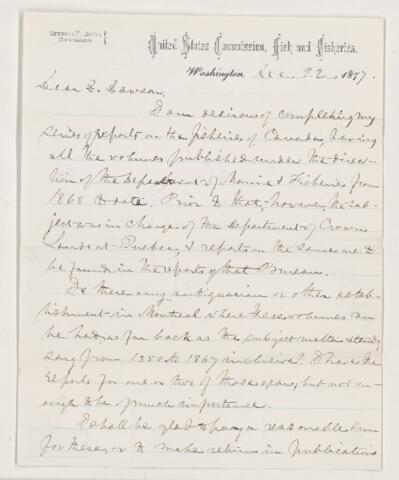 Spencer F. Baird
Commissioner
United States Commission, Fish and Fisheries.
Washington, Dec 22 1877.
Dear Dr. Dawson,
I am desirous of completing my
series of reports on the fisheries of Canada, having
all the volumes published under the direc-
tion of the Department of Marine & Fisheries from
1868 to date. Prior to that, however, the sub-
ject was in charge of the Department of Crown
Lands at Quebec, & reports on the same are to
be found in the reports of that Bureau.
Is there any antiquarian or other estab-
lishment in Montreal where these volumes can
be had, as far back as the subject matter extends,
say from 1850 to 1867 inclusive? I have the
Reports for one or two of those years, but not en-
ough to be of much importance.
I shall be glad to pay a reasonable sum
for these, or to make returns in publications